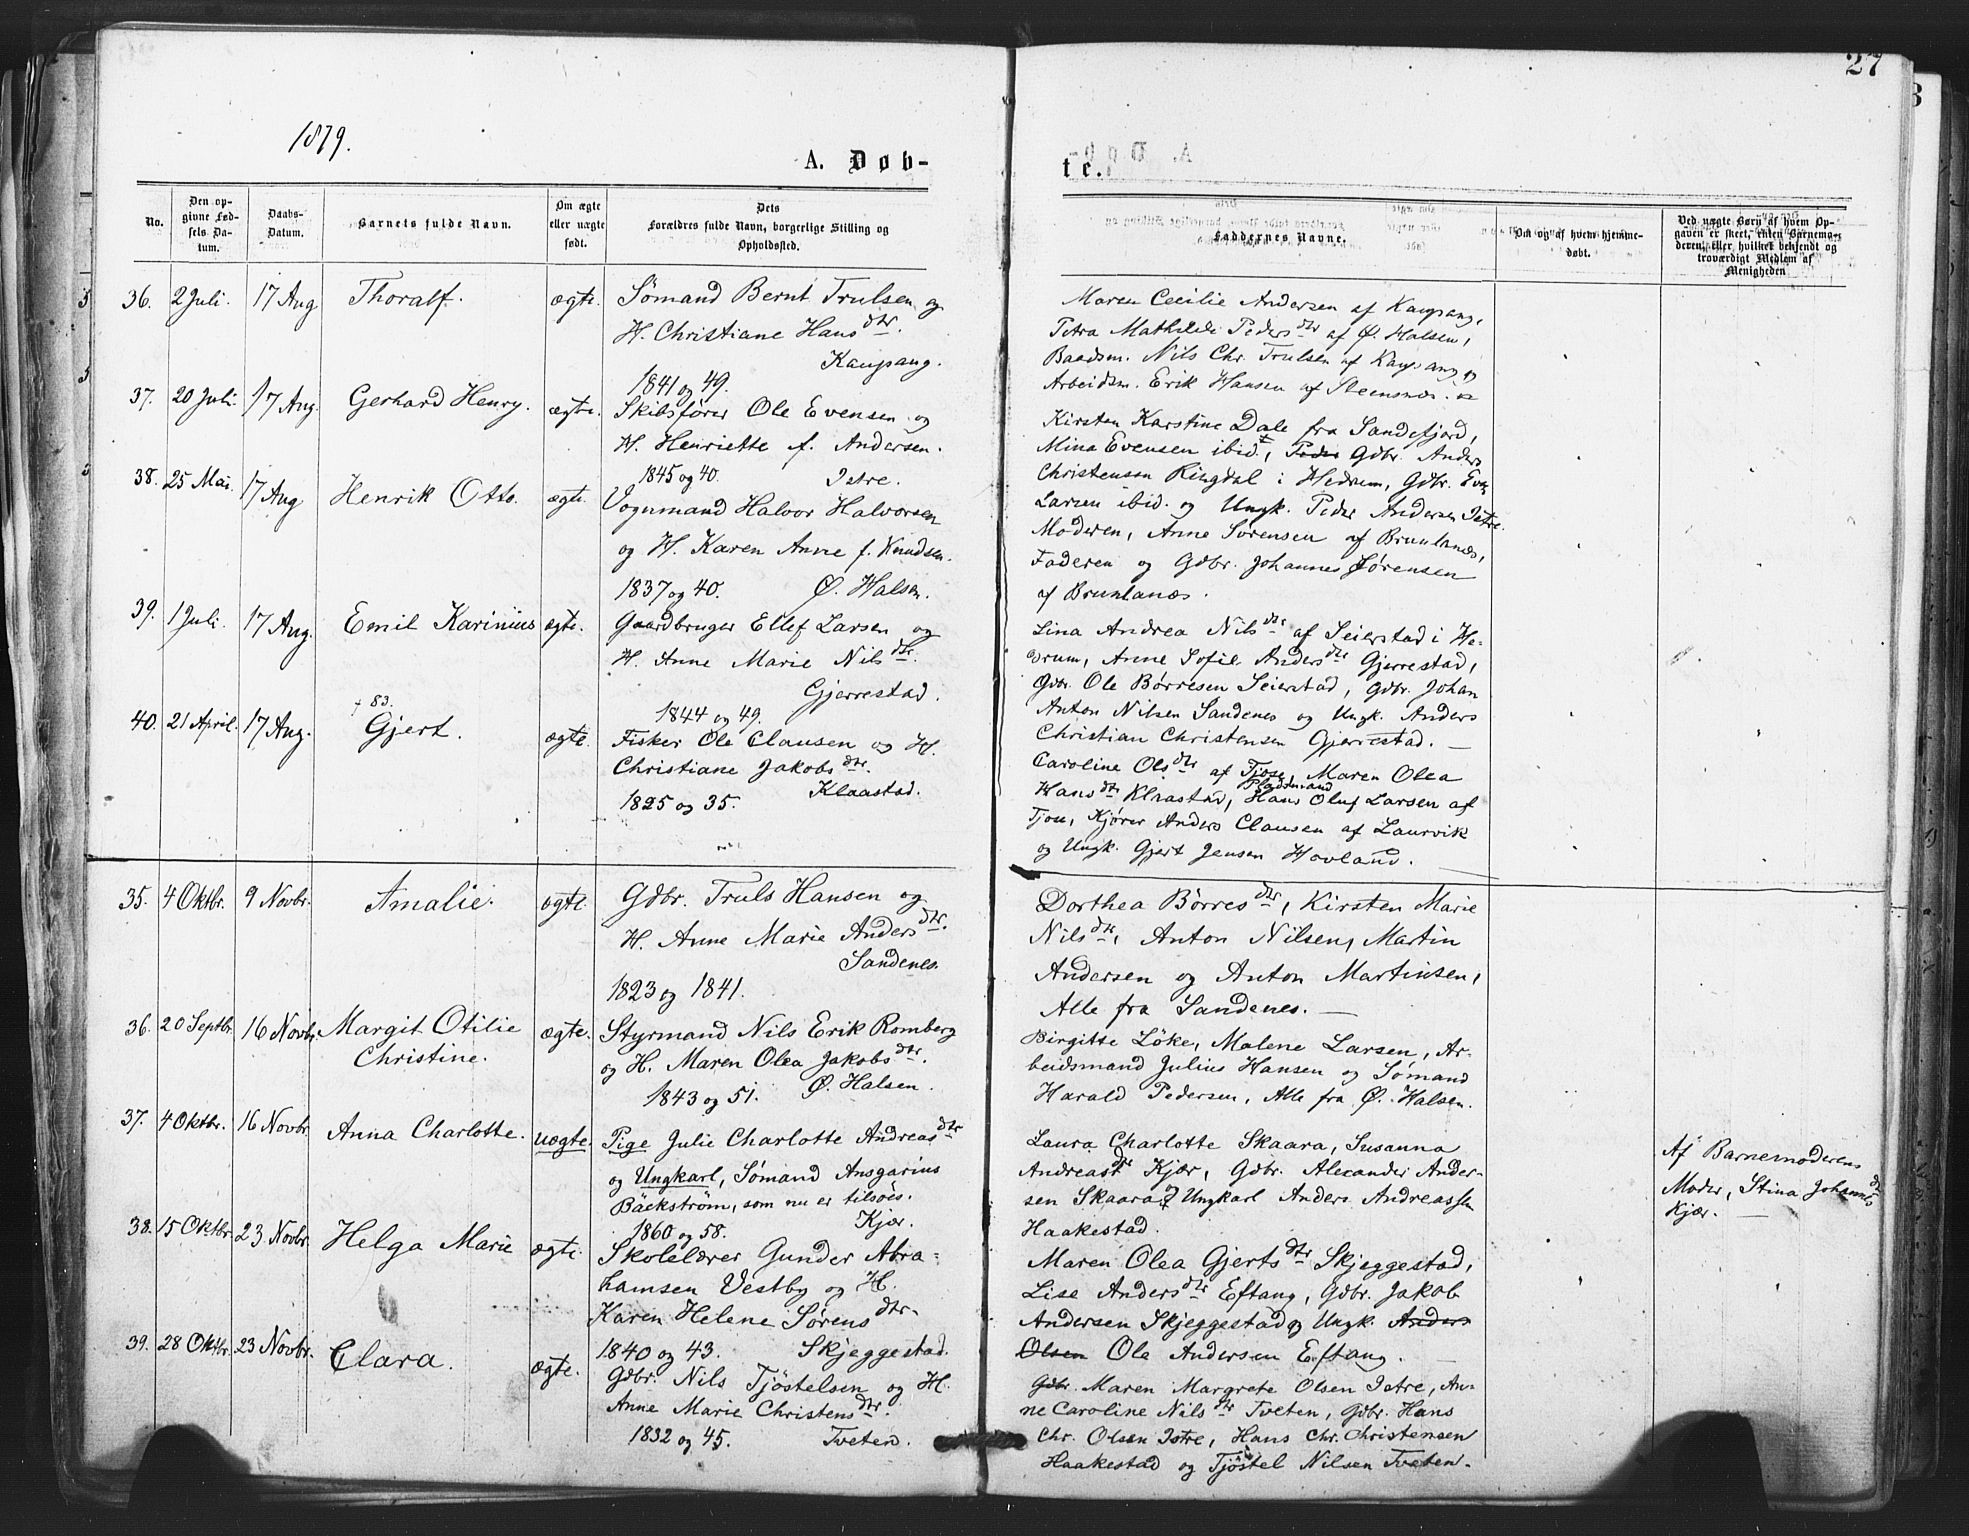 27
1879.
A. Døb-
te.
No.
Den op-
givne Fød-
sels Da-
tum.
Daabs-
Datum.
Barnets fulde Navn.
Om ægte
eller uægte
født.
Dets
Forældres fulde Navn, borgerlige Stilling og
Opholdssted.
Faddernes Navne.
Om og af hvem hjemme-
døbt.
Ved uægte Børn af hvem Op-
gaven er skeet, enten Barnema-
deren, eller hvilket bekjendt og
troværdigt Medlem af
Menigheden
36. 2 Juli. 17 Aug Thoralf. ægte. Sømand Bernt Trulsen og
H. Christiane Hansdtr.
Kaupang.
1841 og 49.
Maren Cecilie Andersen af Kaupang,
Petra Mathilde Pedersdtr af Ø. Halsen,
Baadsm. Nils Chr. Trulsen af Kaupang og
Arbeidsm. Erik Hansen af Steensnæs.
37. 20 Juli. 17 Aug. Gerhard Henry. ægte. Skibsfører Ole Evensen og
H. Henriette f. Andersen.
1845 og 40. Istre.
Kirsten Karstine Dale fra Sandefjord,
Mina Evensen ibid., Peder Gdbr. Anders
Christensen Ringdal i Hedrum, Gdbr. Even
Larsen ibid. og Ungk. Peder Andersen Istre.
38. 25 Mai. 17 Aug Henrik Otto. ægte. Vognmand Halvor Halvorsen
og H. Karen Anne f. Knudsen.
1837 og 40. Ø. Halsen.
Moderen, Anne Sørensen af Brunlanæs,
Faderen og Gdbr. Johannes Sørensen
af Brunlanæs.
39. 1 Juli. 17 Aug. Emil Karinius ægte. Gaardbruger Ellef Larsen og
H. Anne Marie Nilsdtr.
Gjerrestad.
1844 og 49.
Lina Andrea Nilsdtr af Seierstad i He-
drum, Anne Sofie Andersdtr Gjerrestad,
Gdbr. Ole Børresen Seierstad, Gdbr. Johan
Anton Nilsen Sandenes og Ungk. Anders
Christian Christensen Gjerrestad.
† 83.
40. 21 April. 17 Aug. Gjert. ægte. Fisker Ole Clausen og H.
Christiane Jakobsdtr.
Klaastad.
1825 og 35.
Caroline Olsdtr af Tjose, Maren Olea
Hansdtr Klaastad, Pladsmand Hans Oluf Larsen af
Tjose, Kjører Anders Clausen af Laurvik
og Ungk. Gjert Jensen Hovland.
35. 4 Oktbr. 9 Novbr. Amalie. ægte. Gdbr. Truls Hansen og
H. Anne Marie Andersdtr.
Sandenes.
1823 og 1841.
Dorthea Børresdtr, Kirsten Marie
Nilsdtr, Anton Nilsen, Martin
Andersen og Anton Martinsen,
Alle fra Sandenes.
36. 20 Septbr. 16 Novbr. Margit Otilie
Christine. ægte. Styrmand Nils Erik Romberg
og H. Maren Olea Jakobsdtr.
1843 og 51. Ø. Halsen.
Birgitte Löke, Malene Larsen, Ar-
beidsmand Julius Hansen og Sømand
Harald Pedersen, Alle fra Ø. Halsen.
37. 4 Oktbr. 16 Novbr. Anna Charlotte. uægte. Pige Julie Charlotte Andreasdtr
og Ungkarl, Sømand Ansgarius
Bäckström, som nu er tilsøes.
1860 og 58. Kjær.
Laura Charlotte Skaara, Susanna
Andreasdtr Kjær, Gdbr. Alexander Ander-
sen Skaara og Ungkarl Anders Andreassen
Haakestad.
Af Barnemoderens
Moder, Stina Johannesdtr
Kjær.
38. 15 Oktbr. 23 Novbr. Helga Marie ægte. Skolelærer Gunder Abra-
hamsen Vestby og H.
Karen Helene Sørensdtr.
1840 og 43. Skjeggestad.
Maren Olea Gjertsdtr Skjeggestad,
Lise Andersdtr Eftang, Gdbr. Jakob
Andersen Skjeggestad og Ungk. Anders
Olsen Ole Andersen Eftang.
39. 28 Oktbr. 23 Novbr. Clara. ægte. Gdbr. Nils Tjöstelsen og H.
Anne Marie Christensdtr.
1832 og 45. Tveten.
Gdbr. Maren Margrete Olsen Istre, An-
ne Caroline Nilsdtr Tveten, Gdbr. Hans
Chr. Olsen Istre, Hans Chr. Christensen
Haakestad og Tjöstel Nilsen Tveten.